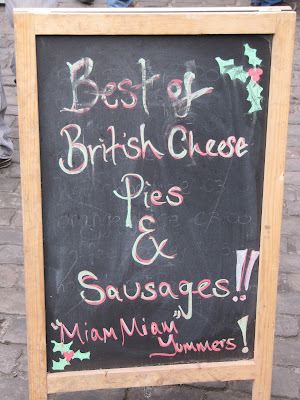 Best of
British Cheese
Pies
&
Sausages!!
"Miam Miam"
Yummers!